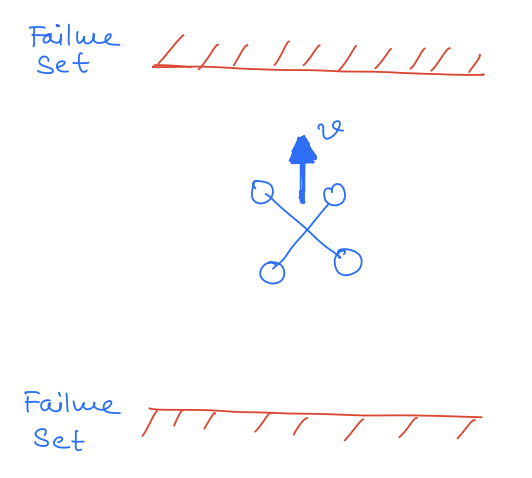 Failure
Set
v
Failure
Set